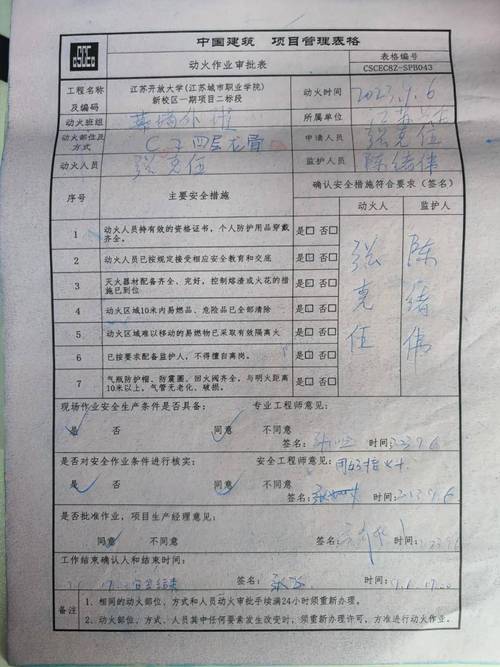 CSCEC
中国建筑 项目管理表格
动火作业审批表
表格编号
CSCEC8Z-SPB043
工程名称及编码
江苏开放大学(江苏城市职业学院)
新校区一期项目二标段
动火时间
2023.9.6
动火班组
幕墙外架
所属单位
动火部位及方式
四层龙骨
申请人员
张克伍
动火人员
张克伍
监护人员
陈绪伟
序号
主要安全措施
确认安全措施符合要求(签名)
动火人
监护人
1 动火人员持有效的资格证书,个人防护用品穿戴
齐全。
是□ 否□
2 动火人员已按规定接受相应安全教育和交底
是□ 否□
3 灭火器材配备齐全、完好,控制熔渣或火花的措
施已到位
是□ 否□
4 动火区域10米内易燃品、危险品已全部清除
是□ 否□
5 动火区域难以移动的易燃物已采取有效隔离火
是□ 否□
6 已按要求配备监护人,不得擅自离岗。
是□ 否□
7 气瓶防护帽、防震圈、回火阀齐全,与明火距离
10米以上,气管无老化、破损。
是□ 否□
张克伍
陈绪伟
现场作业安全生产条件是否具备:
专业工程师意见:
是 否 同意 不同意
签名: 时间:
是否对安全作业条件进行核实:
安全工程师意见:
是 否 同意 不同意
签名: 时间:2023.9.6
是否批准作业,项目生产经理意见:
同意 不同意
签名: 时间:
工作结束确认人和结束时间:
签名: 时间:
备注
1、相同的动火部位、方式和人员动火审批手续满24小时须重新办理。
2、动火部位、方式、人员其中任何要素生发生改变时,须重新办理许可,方准进行动火作业。